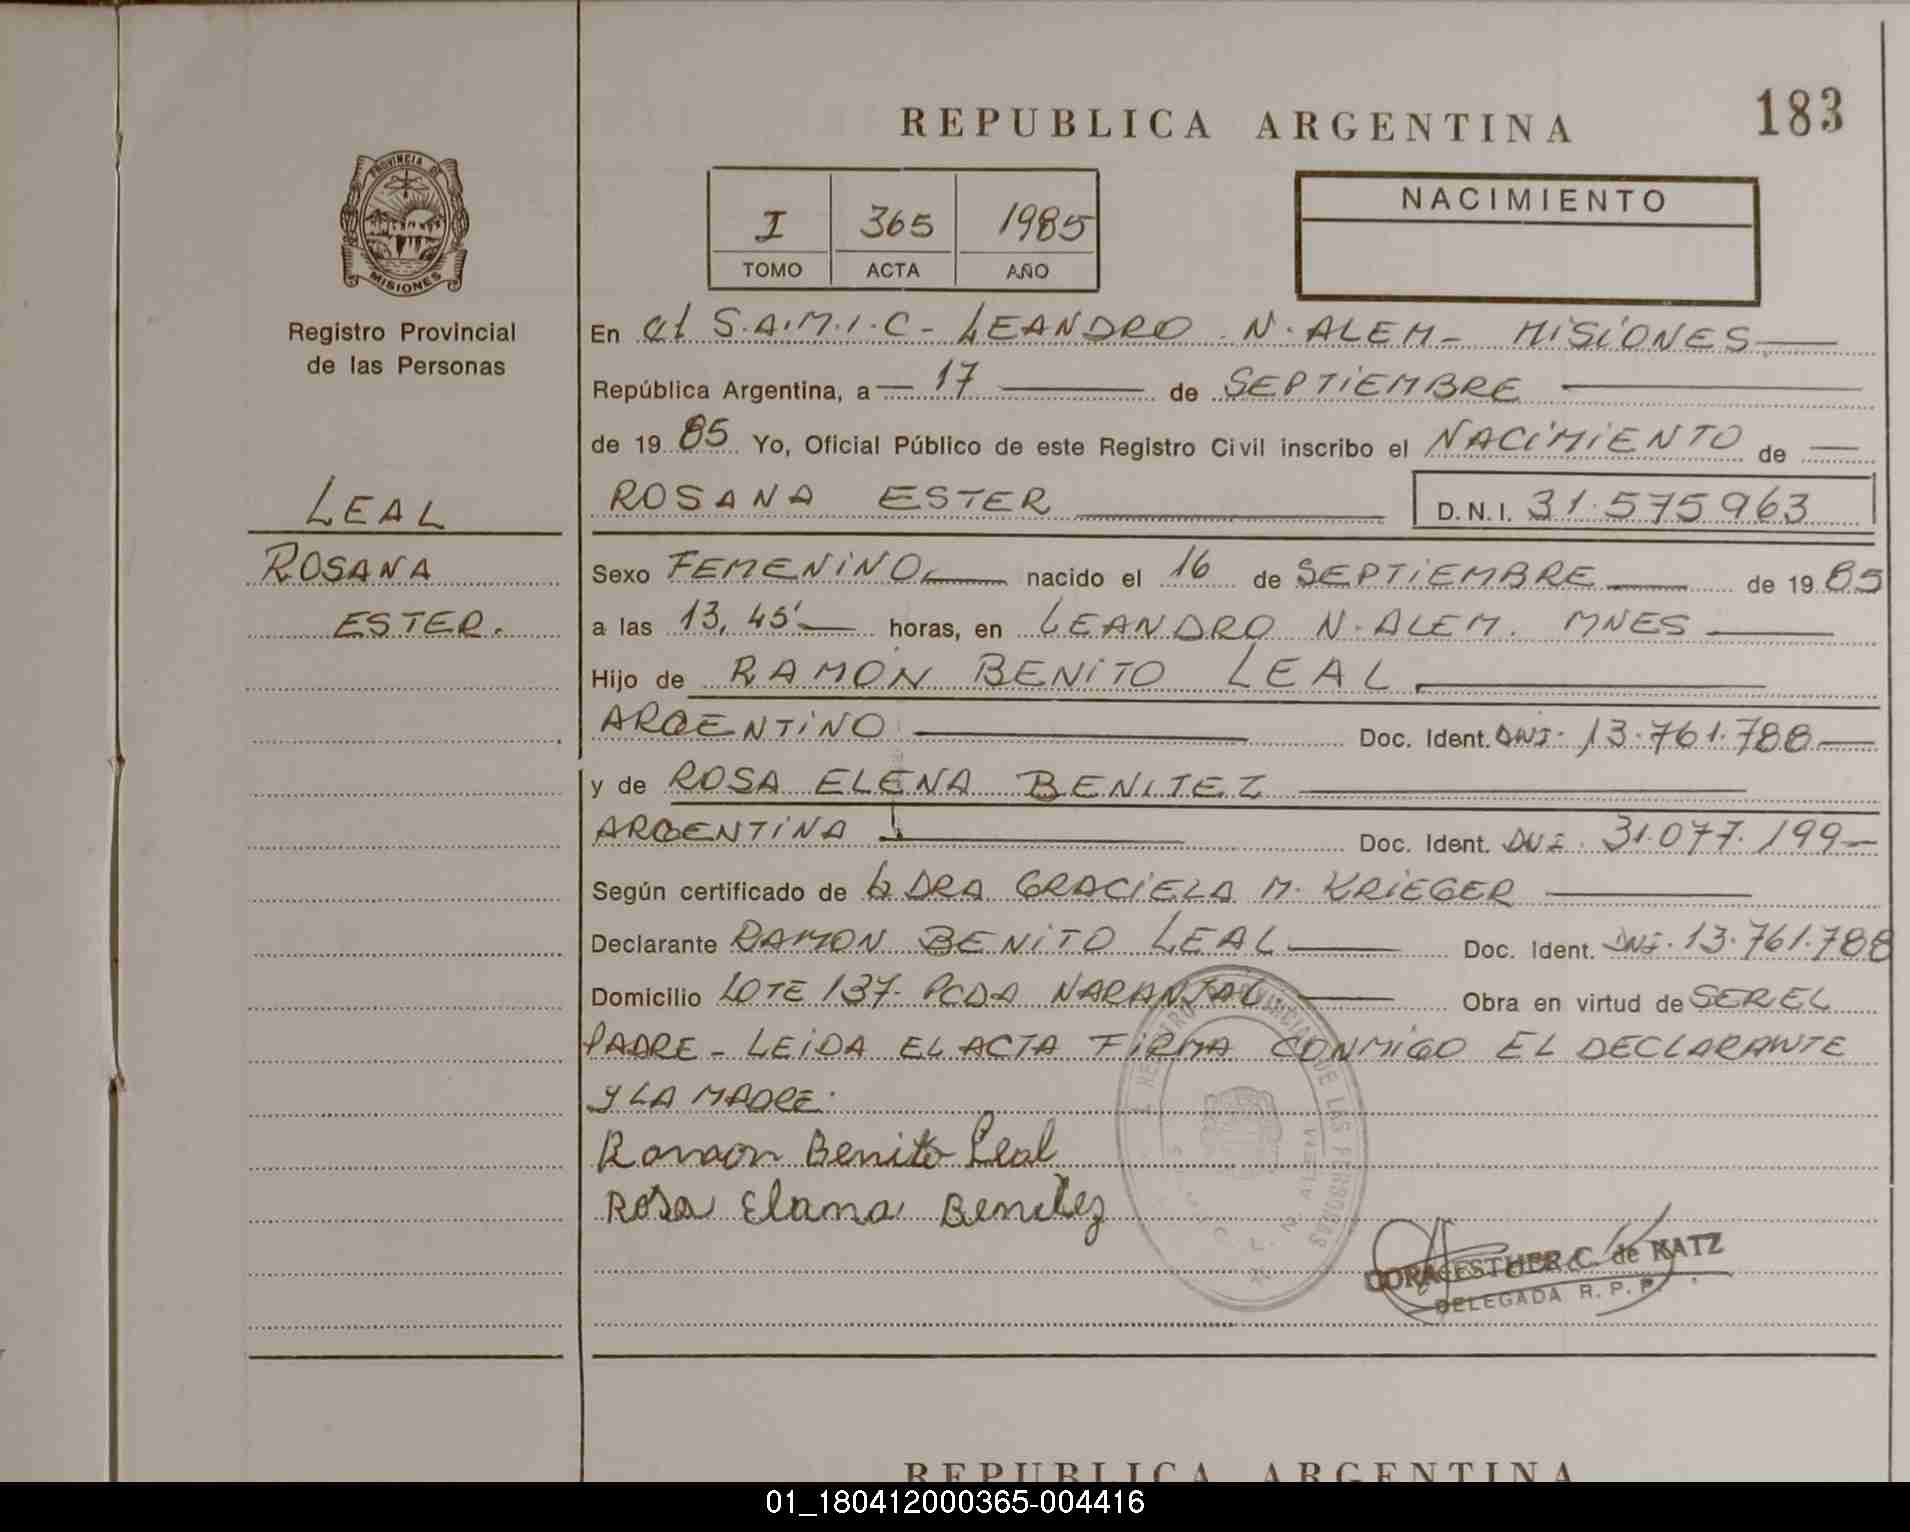 REPUBLICA ARGENTINA
183
PROVINCIA DE
MISIONES
Registro Provincial
de las Personas
I 365 1985
TOMO ACTA AÑO
NACIMIENTO
En el S.A.M.I.C - LEANDRO N. ALEM - MISIONES
República Argentina, a 17 de SEPTIEMBRE
de 1985 Yo, Oficial Público de este Registro Civil inscribo el NACIMIENTO de
LEAL
ROSANA
ESTER.
ROSANA ESTER D.N.I. 31.575963
Sexo FEMENINO nacido el 16 de SEPTIEMBRE de 1985
a las 13,45' horas, en LEANDRO N. ALEM. MNES
Hijo de RAMÓN BENITO LEAL
ARGENTINO Doc. Ident. DNI. 13.761.788
y de ROSA ELENA BENITEZ
ARGENTINA Doc. Ident. DNI. 31.077.199
Según certificado de la DRA GRACIELA M. KRIEGER
Declarante RAMON BENITO LEAL Doc. Ident. DNI. 13.761.788
Domicilio LOTE 137. PCDA NARANJAL Obra en virtud de SER EL
PADRE - LEIDA EL ACTA FIRMA CONMIGO EL DECLARANTE
Y LA MADRE.
Ramon Benito Leal
Rosa Elana Benitez
REGISTRO PROVINCIAL DE LAS PERSONAS
L. N. ALEM
DORA ESTHER C. de KATZ
DELEGADA R. P. P.
REPUBLICA ARGENTINA
01_180412000365-004416